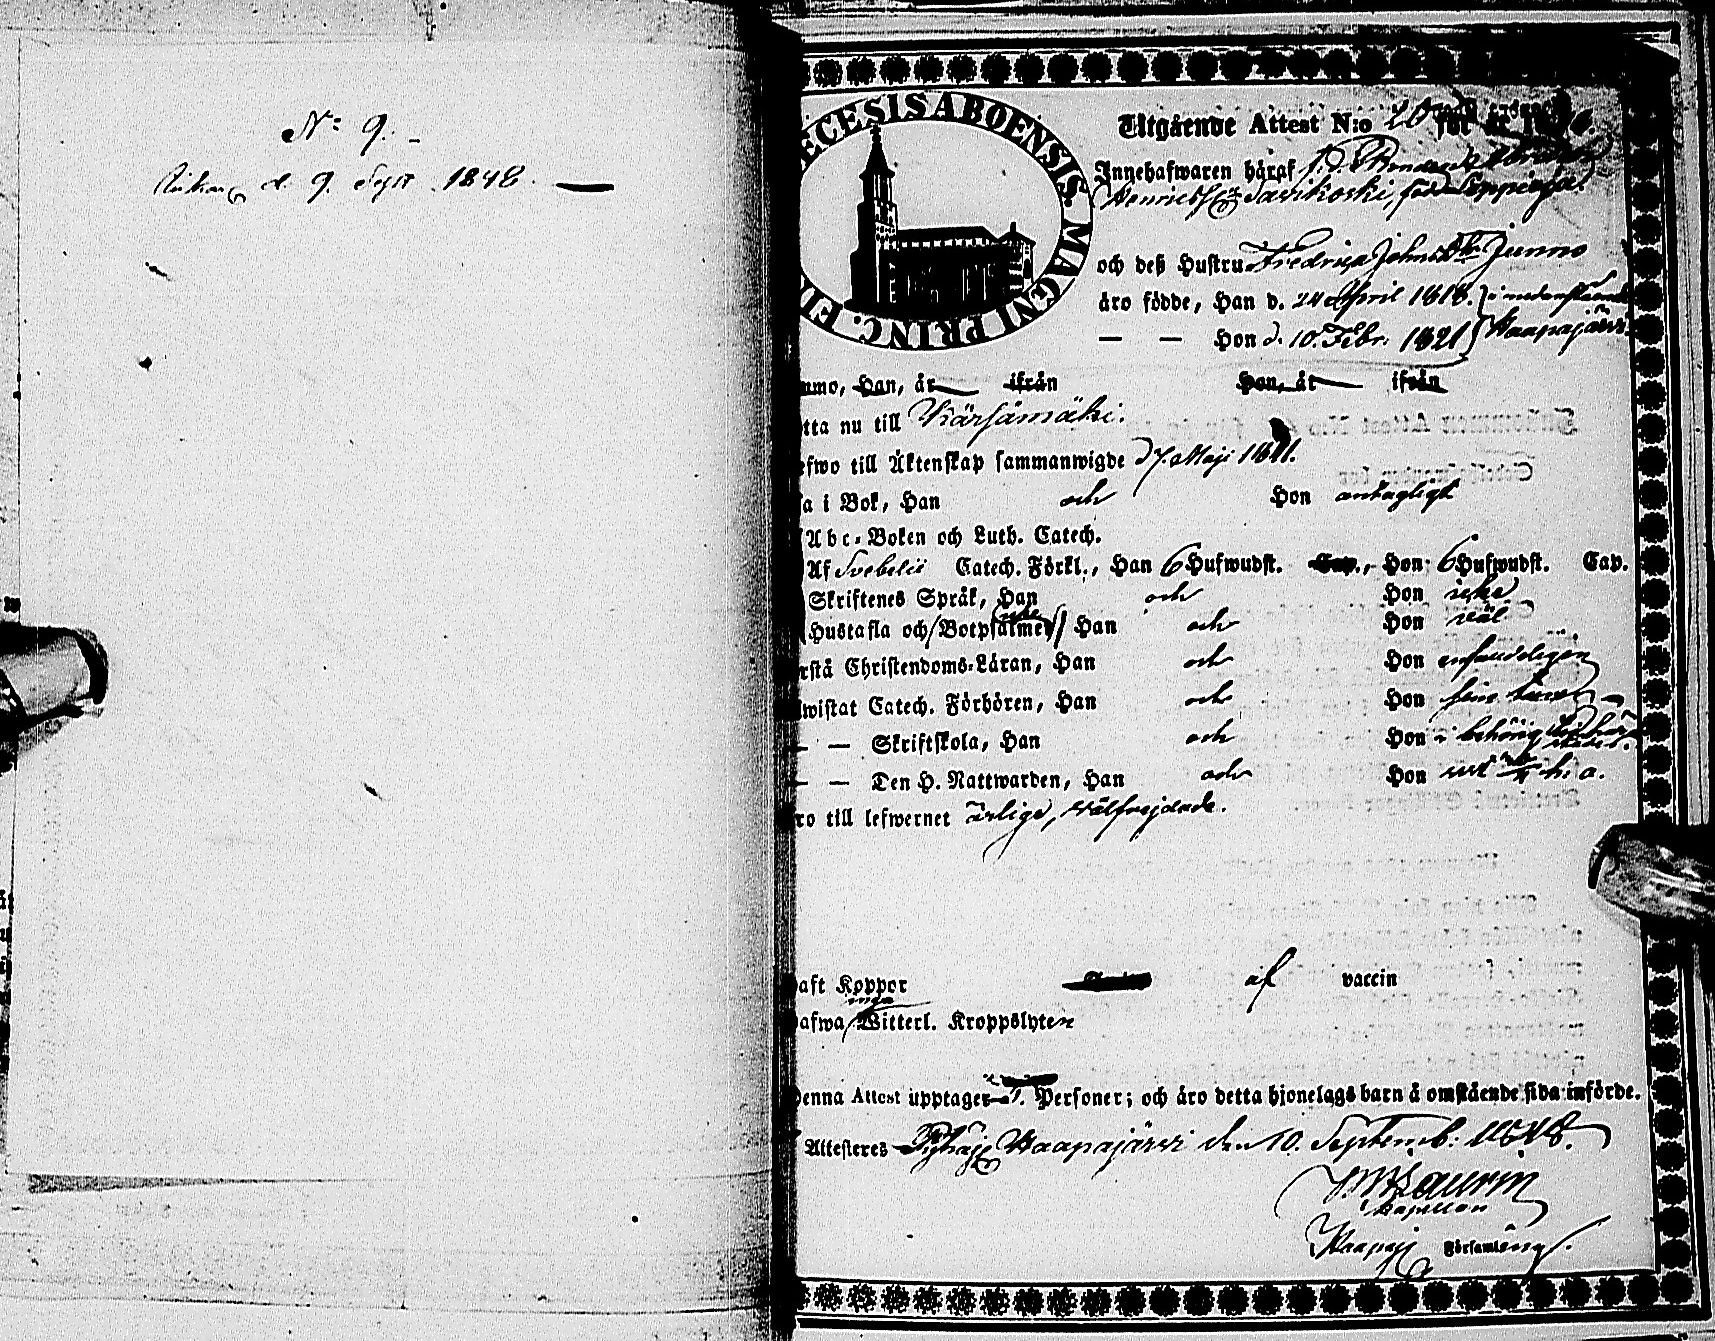 N:o 9.
d. 9. Sept 1848.
ECESIS ABOENSIS. MAGNI PRINC. FIN
Utgående Attest N:o 20 för år
Innehafwaren häraf
Henricss. Sarikoski, född Leppioja
och deß Hustru Fredrica Johnsdr. Junno
äro födde, Han d. 24 April 1818. i nedanstående
— — Hon d. 10. Febr. 1821 Haapajärvi
mmo, Han, år ifrån Hon, år ifrån
tta nu till Kärsämäki.
efwo till Äktenskap sammanwigde d 7. Maji 1841.
a i Bok, Han och Hon antagligt
Abc-Boken och Luth. Catech.
Af Svebelii Catech. Förkl., Han 6 Hufwudst. Cap., Hon 6 Hufwudst. Cap.
Skriftenes Språk, Han och Hon icke
Hustafla och (icke Botpsalmer) Han och Hon wäl
rstå Christendoms-Läran, Han och Hon enfaldeligen
wistat Catech. Förhören, Han och Hon
— — Skriftskola, Han och Hon i behörig
— — Den H. Nattwarden, Han och Hon h. a.
ro till lefwernet ärlige, wälfrejdade.
aft Koppor af vaccin
afwa inga Witterl. Kroppslyten
Denna Attest upptager Personer; och äro detta hjonelags barn å omstående sida införde.
Attesteres Pyhäj. Haapajärvi den 10. Septemb: 1848.
Kapellan
Haapaj. Församling.